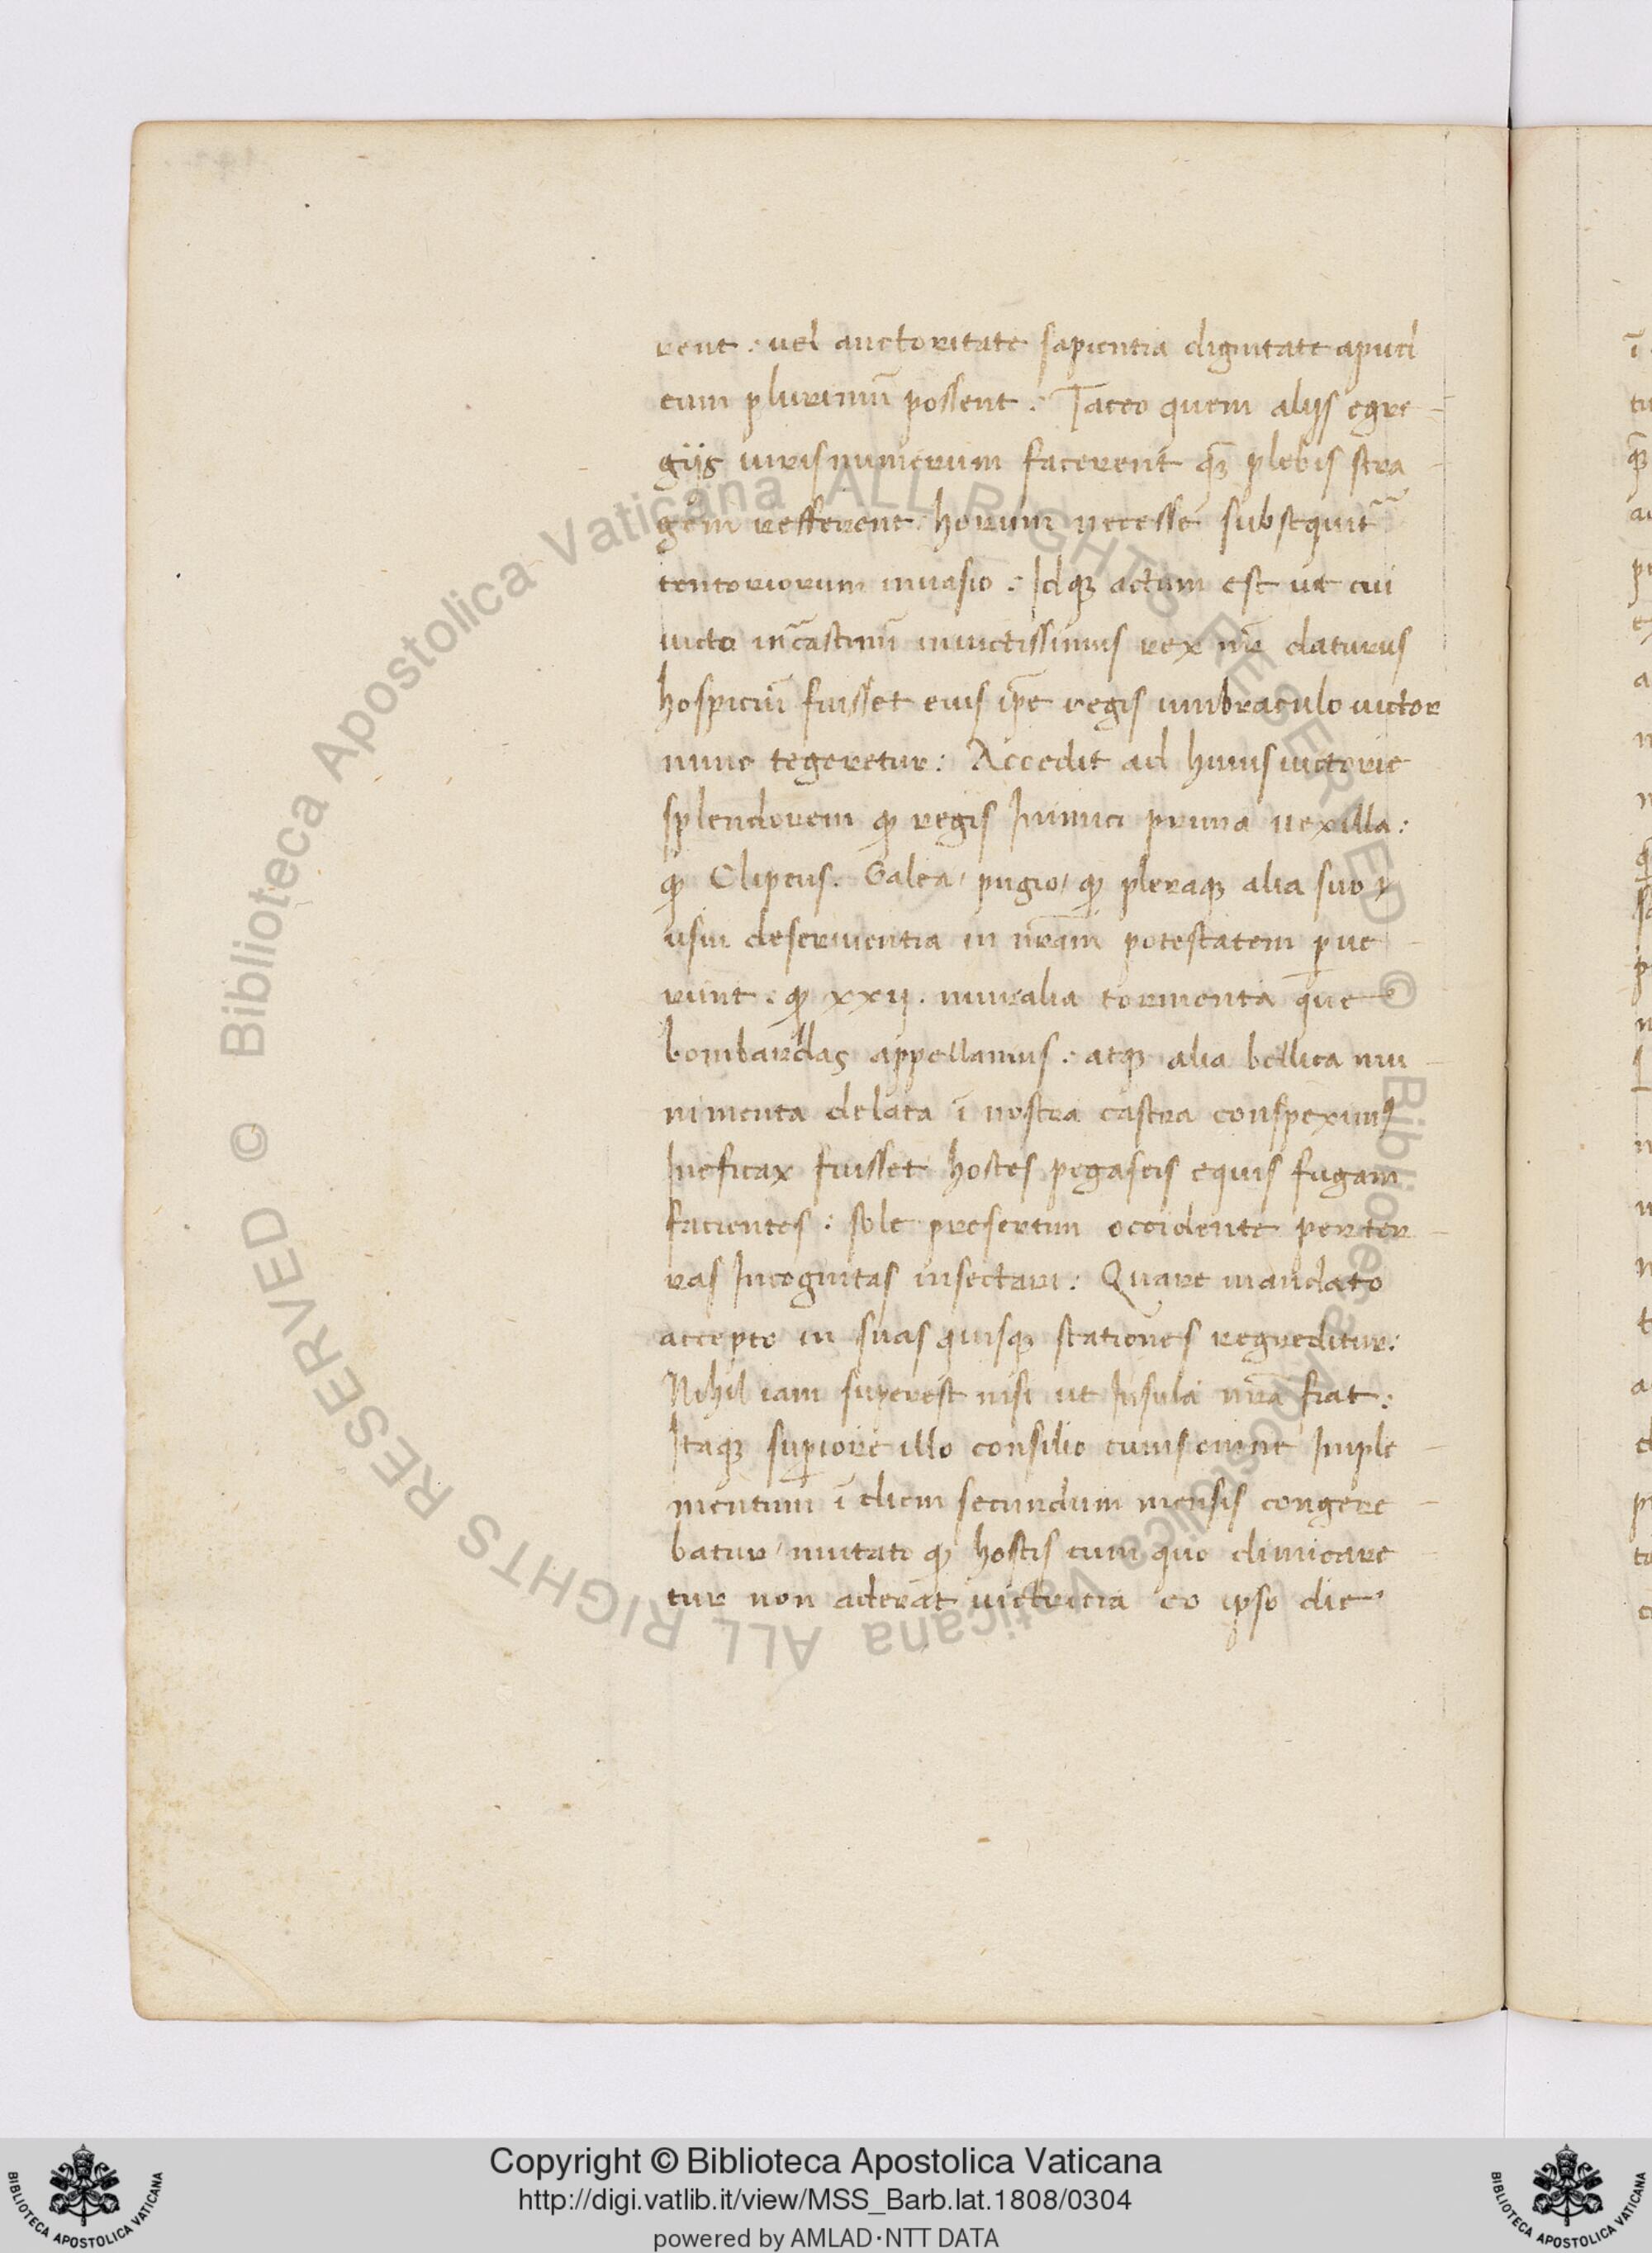 rent : uel auctoritate sapientia dignitate apud
eum plurimū possent : Taceo quem alijs egre-
gijs uiris numerum facerent qꝫ plebis stra-
gem refferent horum necesse subsequit̄
tentoriorum inuasio : Idqꝫ actum est ut cui
uicto incastinū inuictissimus rex nr̄ daturus
hospiciū fuisset eius ip̄e regis umbraculo uictor
nunc tegeretur : Accedit ad huius uictorie
splendorem qꝫ regis Inimici prima uexilla :
qꝫ Clipeus . Galea / pugio / qꝫ pleraqꝫ alia suo
usui deseruientia in nr̄am potestatem ꝑue-
runt . qꝫ xxij . muralia tormenta que
bombardas appellamus . atqꝫ alia bellica mu-
nimenta delata ī nostra castra conspeximus
Ineficax fuisset hostes pegaseis equis fugam
facientes : sole presertim occidente per ter-
ras Incognitas insectari : Quare mandato
accepto in suas quisqꝫ stationes regreditur :
Nihil iam superest nisi ut Insula nr̄a fiat :
Itaqꝫ suꝑiore illo consilio cuius omne Imple-
mentum ī diem secundum mensis congere-
batur / mutato qꝫ hostis cum quo dimicare-
tur non aderat uictricia eo ipso die
Copyright © Biblioteca Apostolica Vaticana
http://digi.vatlib.it/view/MSS_Barb.lat.1808/0304
powered by AMLAD·NTT DATA
© Biblioteca Apostolica Vaticana ALL RIGHTS RESERVED © Biblioteca Apostolica Vaticana ALL RIGHTS RESERVED
BIBLIOTECA APOSTOLICA VATICANA
BIBLIOTECA APOSTOLICA VATICANA